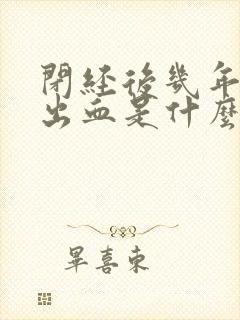 閉經後幾年
出血是什麼
畢喜東